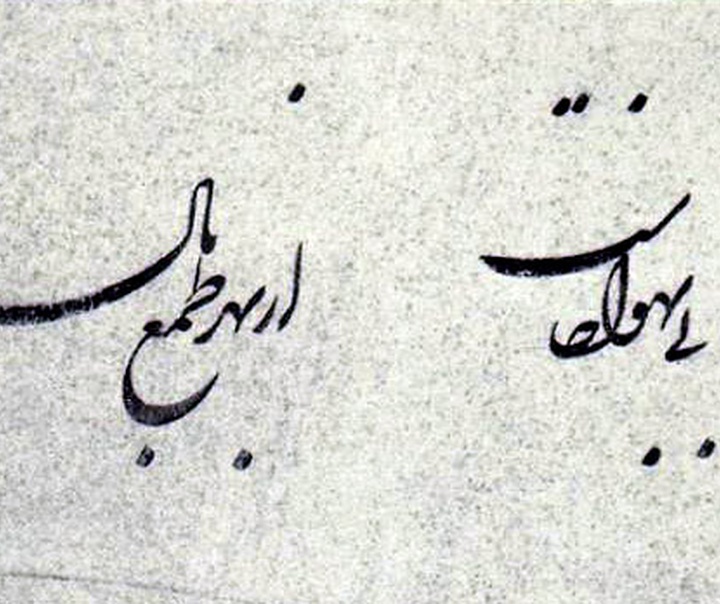 بی بهوا خاست از بهر طمع بال